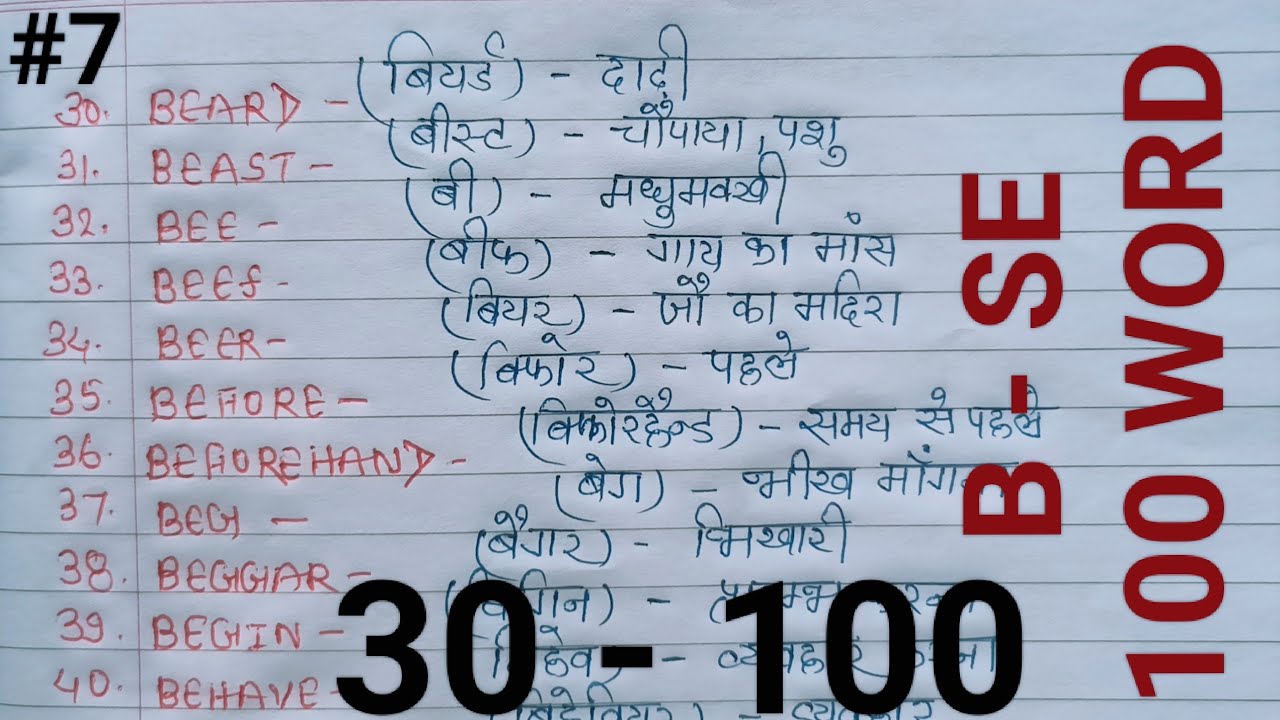 #7
30. BEARD - (बियर्ड) - दाढ़ी
31. BEAST - (बीस्ट) - चौपाया, पशु
32. BEE - (बी) - मधुमक्खी
33. BEEf - (बीफ) - गाय का मांस
34. BEER - (बियर) - जौ का मदिरा
35. BEFORE - (बिफोर) - पहले
36. BEFOREHAND - (बिफोरहैन्ड) - समय से पहले
37. BEG - (बेग) - भीख
38. BEGGAR - (बैगर) - भिखारी
39. BEGIN -
40. BEHAVE -
30 - 100
B- SE
100 WORD